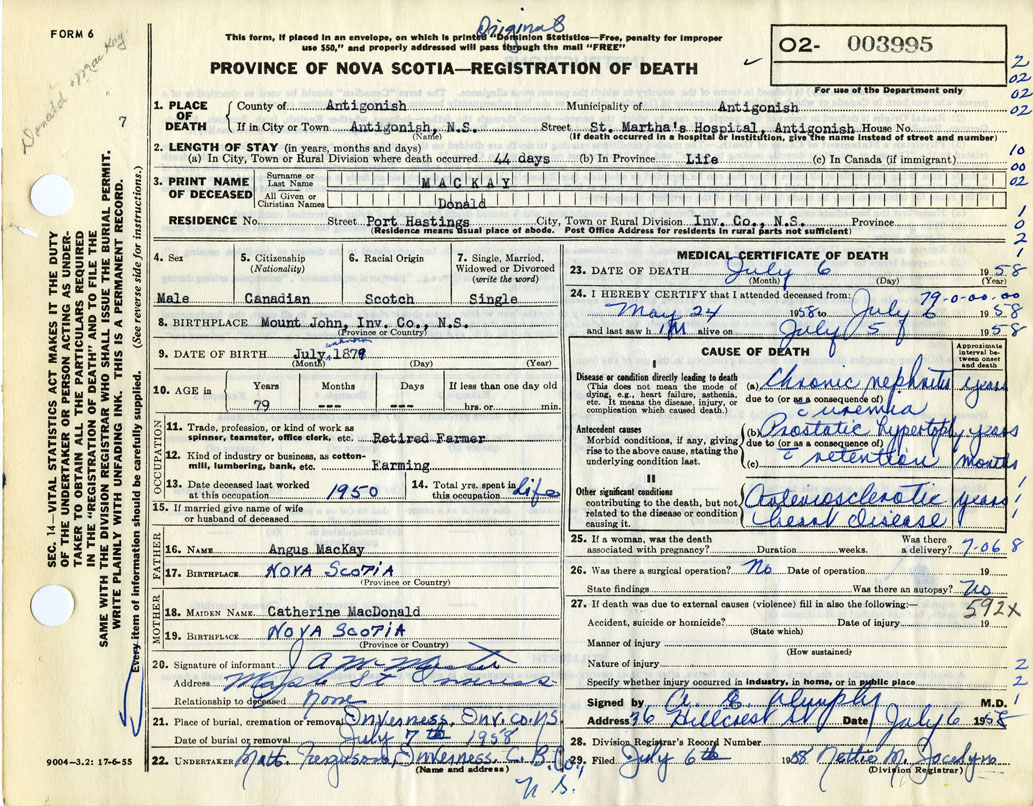 FORM 6
Original
This form, if placed in an envelope, on which is printed "Dominion Statistics—Free, penalty for improper
use $50," and properly addressed will pass through the mail "FREE"
PROVINCE OF NOVA SCOTIA—REGISTRATION OF DEATH
O2- 003995
For use of the Department only
Donald MacKay
7
SEC. 14—VITAL STATISTICS ACT MAKES IT THE DUTY
OF THE UNDERTAKER OR PERSON ACTING AS UNDER-
TAKER TO OBTAIN ALL THE PARTICULARS REQUIRED
IN THE "REGISTRATION OF DEATH" AND TO FILE THE
SAME WITH THE DIVISION REGISTRAR WHO SHALL ISSUE THE BURIAL PERMIT.
WRITE PLAINLY WITH UNFADING INK. THIS IS A PERMANENT RECORD.
Every item of information should be carefully supplied. (See reverse side for instructions.)
1. PLACE OF DEATH
County of Antigonish Municipality of Antigonish
If in City or Town Antigonish, N.S. Street St. Martha's Hospital, Antigonish House No.
(Name) (If death occured in a hospital or institution, give the name instead of street and number)
2. LENGTH OF STAY (in years, months and days)
(a) In City, Town or Rural Division where death occurred 44 days (b) In Province Life (c) In Canada (if immigrant)
3. PRINT NAME OF DECEASED
Surname or Last Name MACKAY
All Given or Christian Names Donald
RESIDENCE No. Street Port Hastings City, Town or Rural Division Inv. Co., N.S. Province
(Residence means usual place of abode. Post Office Address for residents in rural parts not sufficient)
4. Sex
Male
5. Citizenship
(Nationality)
Canadian
6. Racial Origin
Scotch
7. Single, Married,
Widowed or Divorced
(write the word)
Single
8. BIRTHPLACE Mount John, Inv. Co., N.S.
(Province or Country)
unknown
9. DATE OF BIRTH July 1879
(Month) (Day) (Year)
10. AGE in Years Months Days If less than one day old
79 --- --- hrs. or min.
OCCUPATION
11. Trade, profession, or kind of work as
spinner, teamster, office clerk, etc. Retired Farmer
12. Kind of industry or business, as cotton-
mill, lumbering, bank, etc. Farming
13. Date deceased last worked
at this occupation 1950
14. Total yrs. spent in
this occupation Life
15. If married give name of wife
or husband of deceased
FATHER
16. NAME Angus MacKay
17. BIRTHPLACE NOVA SCOTIA
(Province or Country)
MOTHER
18. MAIDEN NAME Catherine MacDonald
19. BIRTHPLACE NOVA SCOTIA
(Province or Country)
20. Signature of informant J A McMaster
Address Maple St Inverness
Relationship to deceased None
21. Place of burial, cremation or removal Inverness, Inv. Co. N.S.
Date of burial or removal July 7th 1958
22. UNDERTAKER Matt. Ferguson, Inverness, C.B. Co,
(Name and address)
N.S.
9004-3.2: 17-6-55
MEDICAL CERTIFICATE OF DEATH
23. DATE OF DEATH July 6 1958
(Month) (Day)
79-0-00-00
24. I HEREBY CERTIFY that I attended deceased from:
May 24 1958 to July 6 1958
and last saw h im alive on July 5 1958
CAUSE OF DEATH
Approximate interval between onset and death
I
Disease or condition directly leading to death
(This does not mean the mode of
dying, e.g., heart failure, asthenia,
etc. It means the disease, injury, or
complication which caused death.)
(a) Chronic nephritis years
due to (or as a consequence of)
c uremia
Antecedent causes
Morbid conditions, if any, giving
rise to the above cause, stating the
underlying condition last.
(b) Prostatic hypertophy years
due to (or as a consequence of)
(c) c retention months
II
Other significant conditions
contributing to the death, but not
related to the disease or condition
causing it.
Arteriosclerotic years
heart disease
25. If a woman, was the death Was there
associated with pregnancy? Duration weeks. a delivery?
7-068
26. Was there a surgical operation? No Date of operation 19
State findings Was there an autopsy? No
27. If death was due to external causes (violence) fill in also the following:—
592x
Accident, suicide or homicide? Date of injury 19
(State which)
Manner of injury
(How sustained)
Nature of injury
Specify whether injury occurred in industry, in home, or in public place
Signed by A. E. Dunphy M.D.
Address 36 Hillcrest St Date July 6 1958
28. Division Registrar's Record Number
29. Filed July 6th 1958 Nattie M. Jocelyn
(Division Registrar)
2
02
02
02
10
00
02
1
0
2
1
1
1
1
2
2
1